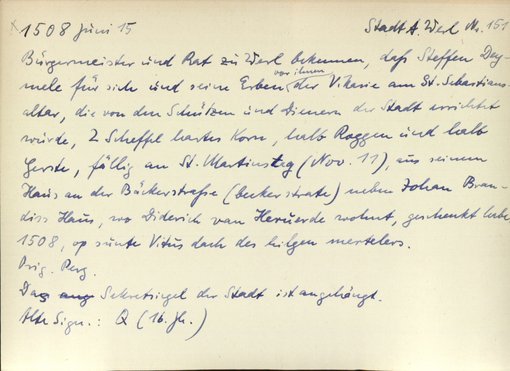 1508 Juni 15 Stadt A. Werl Nr. 151
Bürgermeister und Rat zu Werl bekennen, daß Steffen Day-
mele für sich und seine Erben vor ihnen der Vikarie am St. Sebastians-
altar, die von den Schützen und Dienern der Stadt errichtet
würde, 2 Scheffel hartes Korn, halb Roggen und halb
Gerste, fällig an St. Martinstag (Nov. 11), aus seinem
Haus an der Bäckerstraße (beckerstrate) neben Johan Bran-
diss Haus, wo Diderich van Heruerde wohnt, geschenkt habe
1508, op sunte Vitus dach des hilgen mertelers.
Orig. Perg.
Das Sekretsiegel der Stadt ist angehängt.
Alte Sign.: Q (16. Jh.)